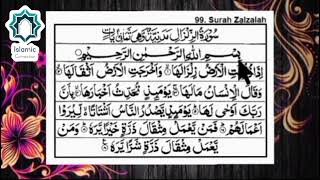 99. Surah Zalzalah
Islamic
سُوْرَةُ الزِّلْزَالِ مَدَنِيَّةٌ وَهِيَ ثَمَانُ اٰيَاتٍ
بِسْمِ اللهِ الرَّحْمٰنِ الرَّحِيْمِ
اِذَا زُلْزِلَتِ الْاَرْضُ زِلْزَالَهَا۝ وَاَخْرَجَتِ الْاَرْضُ اَثْقَالَهَا۝
وَقَالَ الْاِنْسَانُ مَالَهَا۝ يَوْمَئِذٍ تُحَدِّثُ اَخْبَارَهَا۝ بِاَنَّ
رَبَّكَ اَوْحٰى لَهَا۝ يَوْمَئِذٍ يَّصْدُرُ النَّاسُ اَشْتَاتًا۝ لِّيُرَوْا
اَعْمَالَهُمْ۝ فَمَنْ يَّعْمَلْ مِثْقَالَ ذَرَّةٍ خَيْرًا يَّرَهٗ۝ وَمَنْ
يَّعْمَلْ مِثْقَالَ ذَرَّةٍ شَرًّا يَّرَهٗ۝